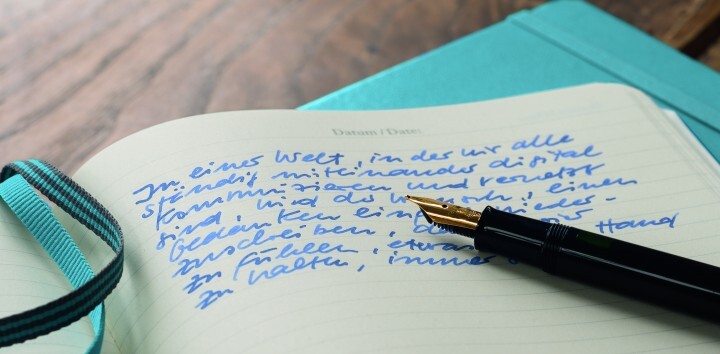 Datum / Date:
In einer Welt, in der wir alle
ständig miteinander digital
kommunizieren und vernetzt
sind, wird der einen
Gedanken einf nieder-
zuschreiben,
zu fühlen, etwas Hand
zu halten, immer